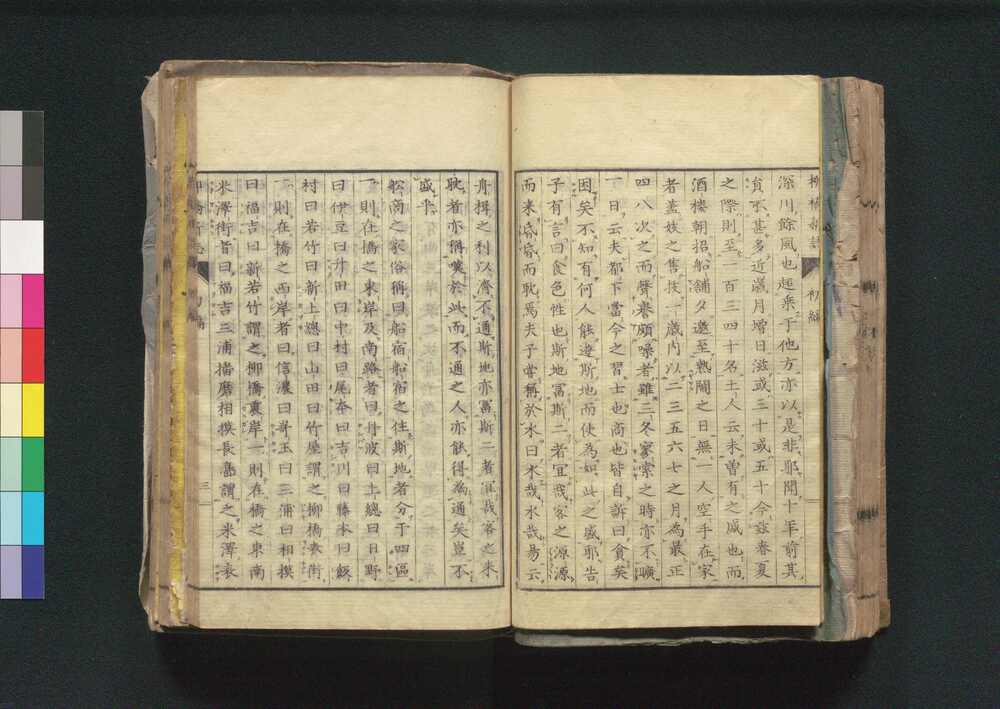 深川餘風也起乗于他方亦以是非耶聞十年前其
貟不甚多近歳月増日滋或三十或五十今玆春夏
之際則至一百三四十名土人云未曽有之盛也而
酒樓朝招船舗夕邀至熱閙之日無一人空手在家
者蓋妓之售技一歳内以二三五六七之月為最正
四八次之而聲巻頗噪者雖三冬寥寥之時亦不曠
一日云夫都下當今之習士也商也皆自訴曰貪矣
困矣不知有何人能邀斯地而使為如此之盛耶告
子有言曰食色性也斯地冨斯二者宜哉客之源源
而来昏昏而耽焉夫子嘗稱於水曰水哉水哉易云
柳橋新誌 初編
舟楫之利以濟不通斯地亦冨斯二者宜哉客之来
耽者亦稱嘆於此而不通之人亦能得為通矣豈不
盛乎
船商之家俗稱曰船宿船宿之住斯地者分于四區
一則在橋之東岸及南路者曰丹波曰上總曰日野
曰伊豆曰升田曰中村曰尾夲曰吉川曰藤本曰飯
村曰若竹曰新上總曰山田曰竹屋謂之柳橋表街
一則在橋之西岸者曰信濃曰井玉曰三浦曰相摸
曰福吉曰新若竹謂之柳橋裏岸一則在橋之東南
米澤街皆曰福吉三浦播磨相摸長島謂之米澤裏
三